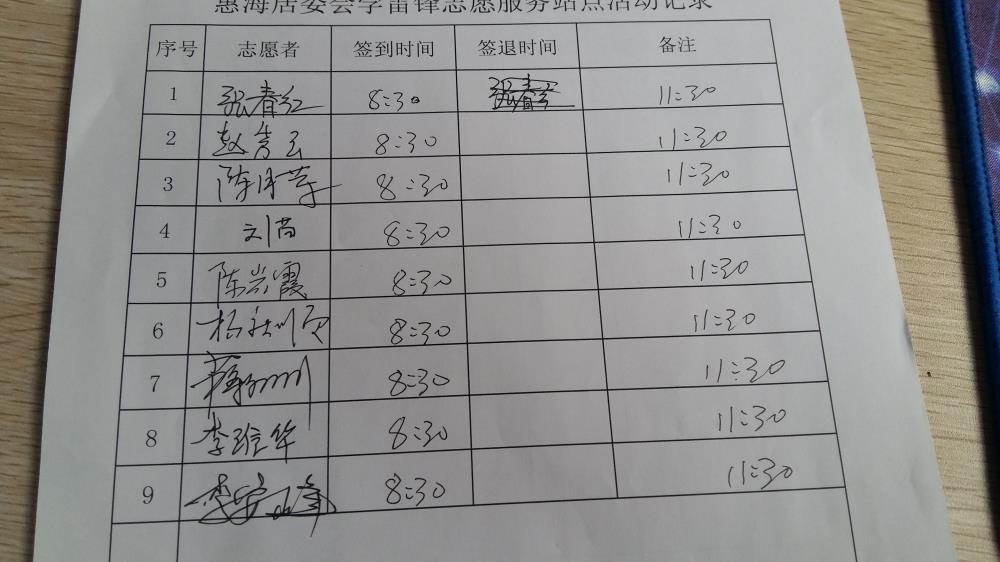 惠海居委会学雷锋志愿服务站点活动记录
序号 志愿者 签到时间 签退时间 备注
1 张春红 8:30 张春 11:30
2 赵 8:30 11:30
3 陈 8:30 11:30
4 刘苗 8:30 11:30
5 陈兴霞 8:30 11:30
6 杨秋顺 8:30 11:30
7 8:30 11:30
8 李 华 8:30 11:30
9 李 峰 8:30 11:30